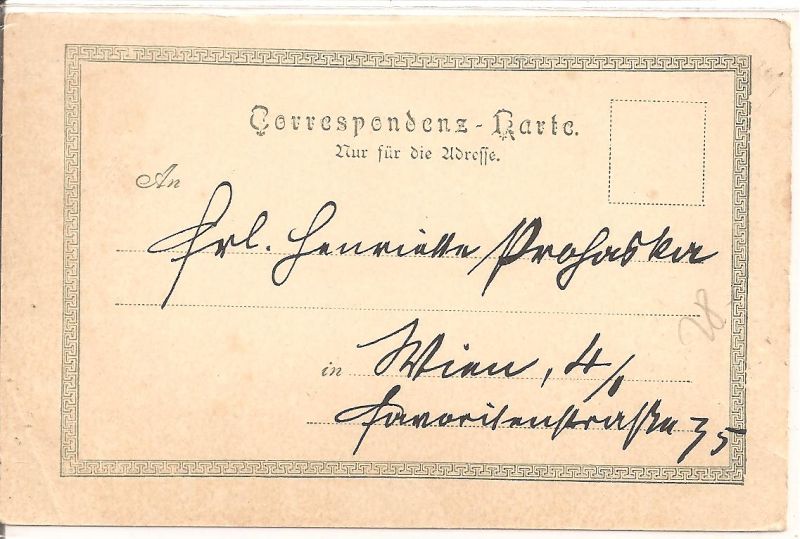 Correspondenz-Karte.
Nur für die Adresse.
An
Frl. Henriette Prohaska
in Wien, 4/1
Favoritenstraße 75
28